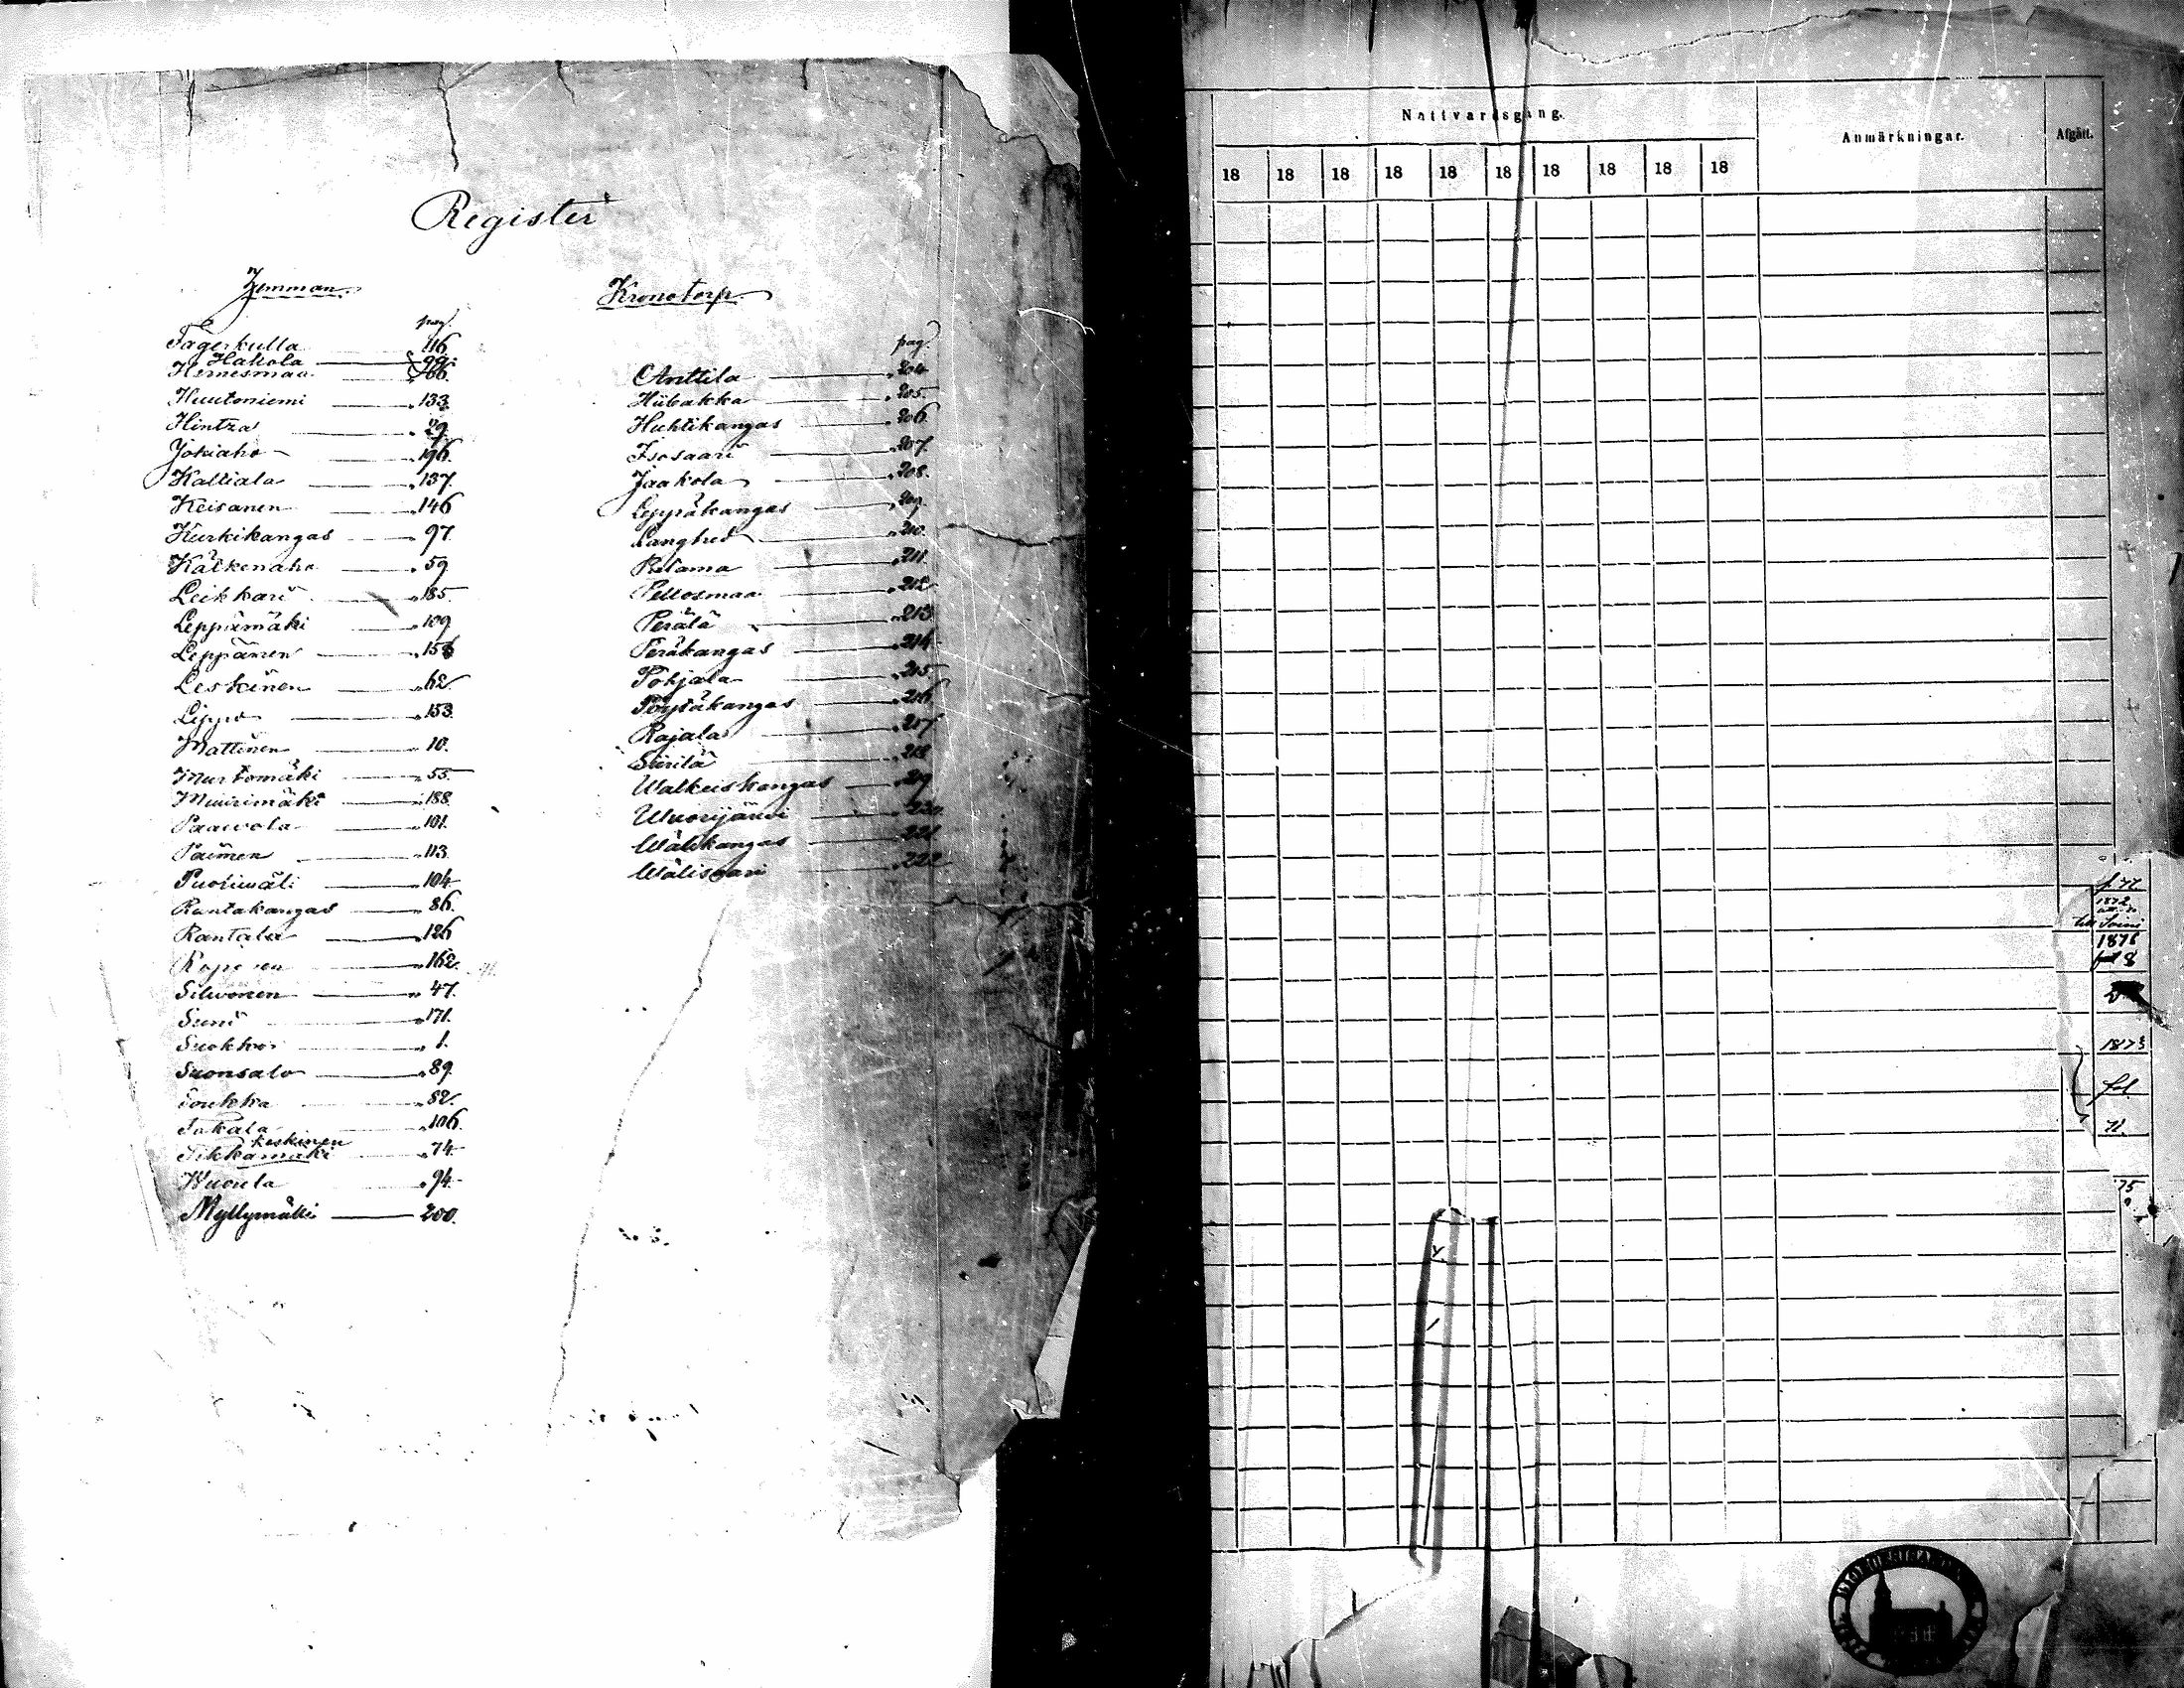 Register
Hemman.
pag.
Fagerkulla 116
Hakola 99.
Hernesmaa 166.
Huutoniemi 133
Hintza 29
Jokiaho 196.
Kattiala 137.
Keisanen 146
Kurkikangas 97.
Kälkenaho 59
Leikkari 185
Leppämäki 109
Leppänen
Leskinen 62
Lippo 153.
Mattinen 10.
Murtomäki 55.
Muurimäki 188.
Paavola 101.
Paimen 113.
104
Rantakangas 86.
Rantala 126
162.
Silvonen 47.
Suni 171.
Suokko 1.
Suonsalo 89.
Toukka 82.
Takala 106.
Keskinen
Tikkamäki 74
Wuorela 94
Myllymäki 200.
Kronotorp
pag.
Anttila 204
Hübakka 205.
Huhtikangas 206
Isosaari 207.
Jaakola 208.
Leppäkangas 209.
Långhed 210.
Palama 211.
Peltosmaa 212
Perälä 213
Peräkangas 214
Pohjala 215
Pöytäkangas 216
Rajala 217
Särilä 218
Walkeiskangas 219
Wuorijärvi 220.
Wälikangas 221
Wälisaari 222
Nattvardsgång.
Anmärkningar.
Afgått.
18 18 18 18 18 18 18 18 18 18
1872
till Soini
1876
1873
fol.
75